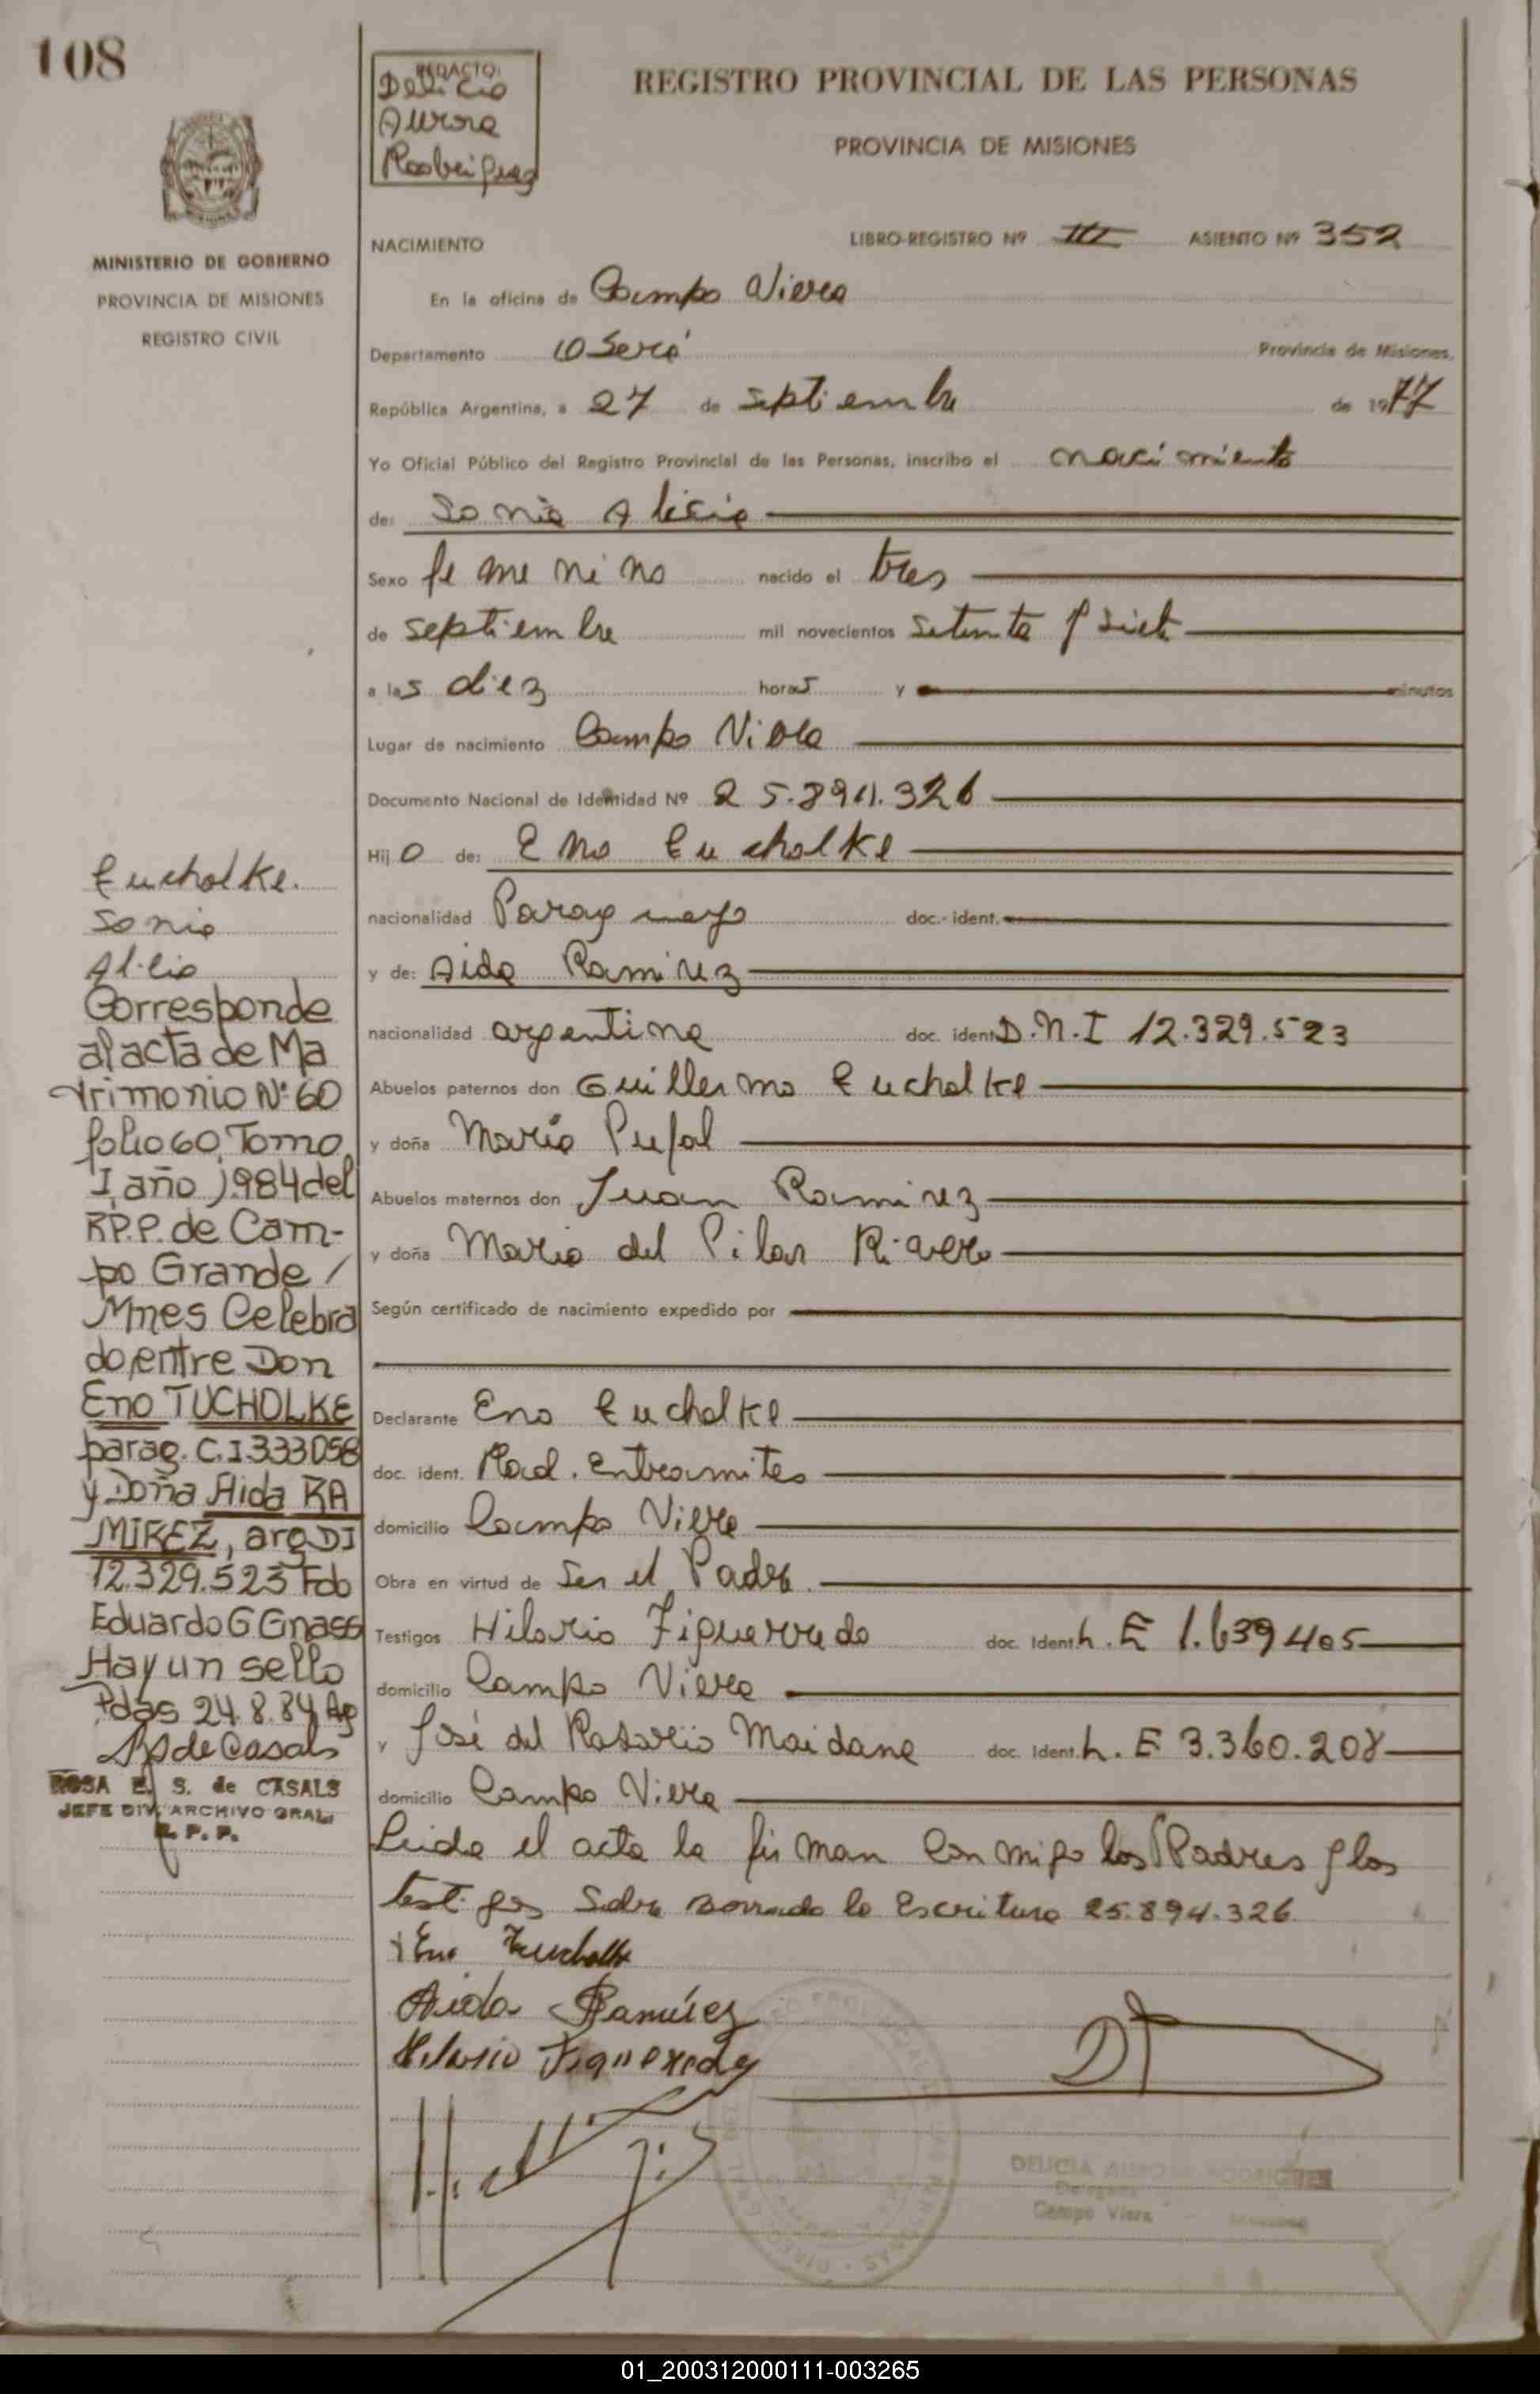 108
REDACTO:
Delicia
Aurora
Rodriguez
REGISTRO PROVINCIAL DE LAS PERSONAS
PROVINCIA DE MISIONES
MINISTERIO DE GOBIERNO
PROVINCIA DE MISIONES
REGISTRO CIVIL
NACIMIENTO
LIBRO-REGISTRO Nº III ASIENTO Nº 352
En la oficina de Campo Viera
Departamento Oberá Provincia de Misiones,
República Argentina, a 27 de septiembre de 1977
Yo Oficial Público del Registro Provincial de las Personas, inscribo el nacimiento
de: Sonia Alicia
Sexo femenino nacido el tres
de septiembre mil novecientos setenta y siete
a las diez horas y minutos
Lugar de nacimiento Campo Viera
Documento Nacional de Identidad Nº 25.894.326
Hijo de: Eno Tucholke
nacionalidad Paraguayo doc. ident.
y de: Aida Ramirez
nacionalidad argentina doc. ident. D.N.I 12.329.523
Abuelos paternos don Guillermo Tucholke
y doña María Pufal
Abuelos maternos don Juan Ramirez
y doña Maria del Pilar Rivero
Según certificado de nacimiento expedido por
Declarante Eno Tucholke
doc. ident. Rad. Entramites
domicilio Campo Viera
Obra en virtud de Ser el Padre
Testigos Hilario Figueredo doc. Ident. L.E 1.639405
domicilio Campo Viera
y José del Rosario Maidana doc. Ident. L.E 3.360.208
domicilio Campo Viera
Leida el acta la firman conmigo los Padres y los
testigos Sobre borrado la Escritura 25.894.326
Eno Tucholke
Aida Ramírez
Hilario Figueredo
DELICIA AURORA RODRIGUEZ
Delegada
Campo Viera Misiones
Tucholke.
Sonia
Alicia
Corresponde
al acta de Ma
trimonio Nº 60
folio 60, Tomo
I, año 1984 del
R.P.P. de Cam-
po Grande /
Mnes Celebra
do, entre Don
Eno TUCHOLKE
parag. C.I.333058
y Doña Aida RA
MIREZ, arg DI
12.329.523 Fdo
Eduardo G Gnass
Hay un sello
Pdas 24.8.84 Ag
RS de Casals
ROSA E. S. de CASALS
JEFE DIV. ARCHIVO GRAL.
R. P. P.
01_200312000111-003265